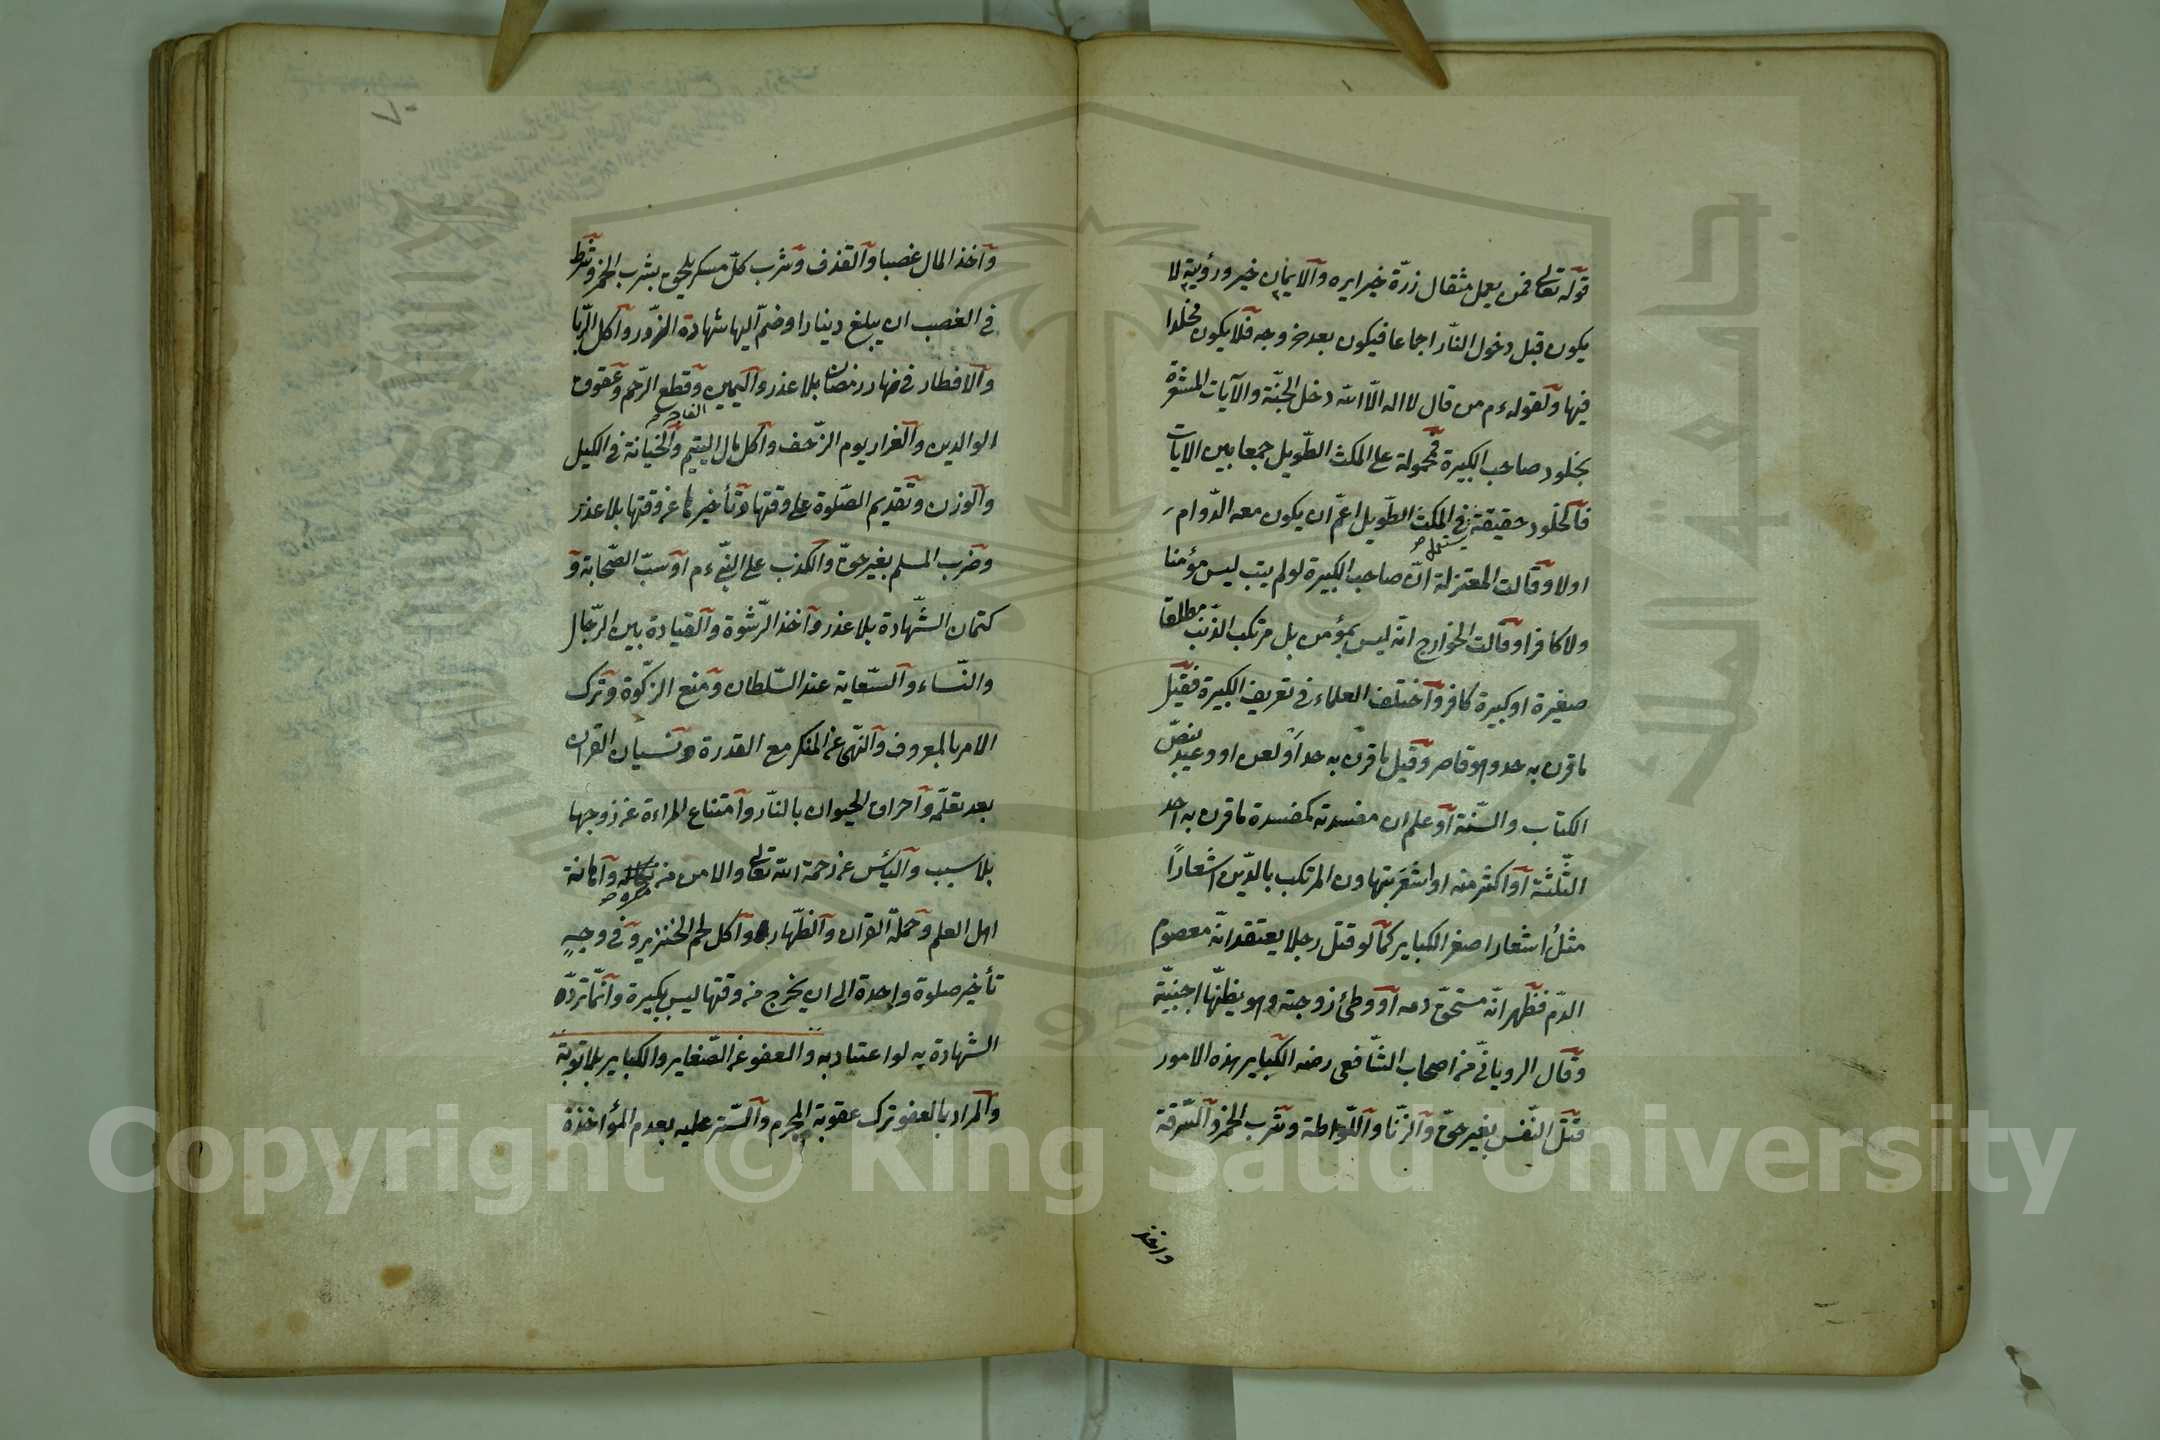 قوله تعالى فمن يعمل مثقال زرّة خيرا يره والايمان خير ورؤيته لا
يكون قبل دخول النّار اجماعا فيكون بعد خروجه فلا يكون مخلدا
فيها ولقوله ءم من قال لا اله الّا الله دخل الجنّة والآيات المشعرة
بخلود صاحب الكبيرة محمولة على المكث الطّويل جمعا بين الايات
فالخلود حقيقة يستعمل في المكث الطّويل اعمّ ان يكون معه الدّوام
او لا وقالت المعتزلة انّ صاحب الكبيرة لو لم يتب ليس مؤمنا
ولا كافرا وقالت الخوارج انّه ليس بمؤمن بل مرتكب الذّنب مطلقا
صغيرة او كبيرة كافر واختلف العلماء في تعريف الكبيرة فقيل
ما قرن به حد وهو قاصر وقيل ما قرن به حد او لعن او وعيد بنصّ
الكتاب والسّنة او علم ان مفسدته كمفسدة ما قرن به احد
الثّلثة او اكثر منه او اشعر بتهاون المرتكب بالدّين اشعاراً
مثل اشعار اصغر الكباير كما لو قتل رجلا يعتقد انّه معصوم
الدّم فظهر انّه مستحقّ دمه او وطئ زوجته وهو يظنّها اجنبيّة
وقال الرويانيّ من اصحاب الشّافعى رضه الكباير هذه الامور
قتل النّفس بغير حقّ والزّنا واللّواطة وشرب الخمر والسّرقة
واخذ
٧٠
واخذ المال غصبا والقذف وشرب كلّ مسكر يلحق بشرب الخمر وشرط
في الغصب ان يبلغ دينارا وضمّ اليها شهادة الزّور واكل الرّبا
والافطار في نهار رمضان بلا عذر واليمين الفاجرة وقطع الرّحم وعقوق
الوالدين والفرار يوم الزّحف واكل مال اليتيم والخيانة في الكيل
والوزن وتقديم الصّلوة على وقتها وتأخيرها عن وقتها بلا عذر
وضرب المسلم بغير حقّ والكذب على النّبيّ ءم او سبّ الصّحابة و
كتمان الشّهادة بلا عذر واخذ الرّشوة والقيادة بين الرّجال
والنّساء والسّعاية عند السّلطان ومنع الزكوة وترك
الامر بالمعروف والنّهى عن المنكر مع القدرة ونسيان القران
بعد تعلّمه واحراق الحيوان بالنّار وامتناع المراءة عن زوجها
بلا سبب واليأس عن رحمة الله تعالى والامن من مكره واهانة
اهل العلم وحملة القران والظّهار واكل لحم الخنزير وفي وجه
تأخير صلوة واحدة الى ان يخرج من وقتها ليس بكبيرة وانّما تردّ
الشهادة به لو اعتاد به والعفو عن الصّغاير والكباير بلا توبة
والمراد بالعفو ترك عقوبة المجرم والسّتر عليه بعدم المؤاخذة
Copyright © King Saud University